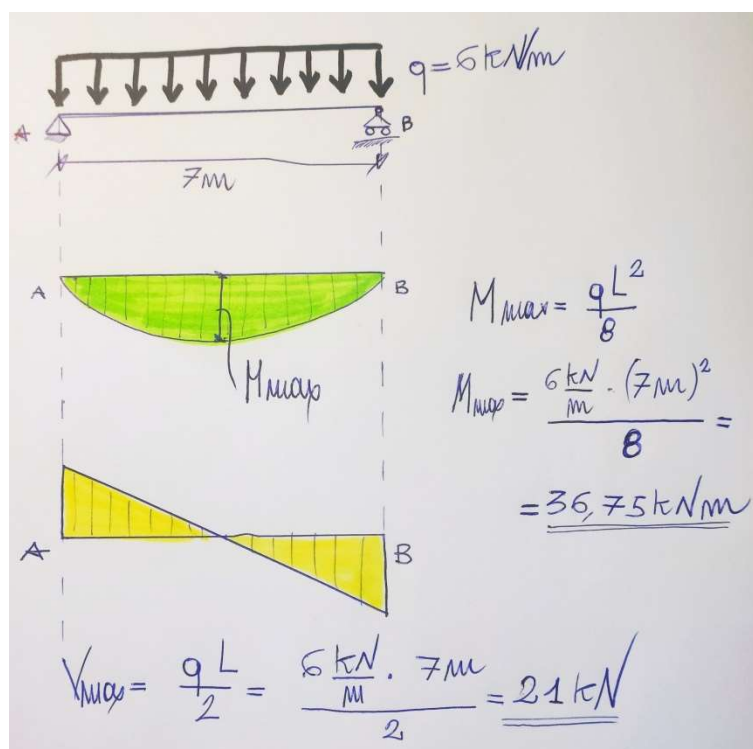 q = 6 kN/m
A B
7m
A B
Mmax
Mmax = qL²/8
Mmax = 6 kN/m · (7m)²/8 =
= 36,75 kNm
A B
Vmax = qL/2 = 6 kN/m · 7m/2 = 21 kN